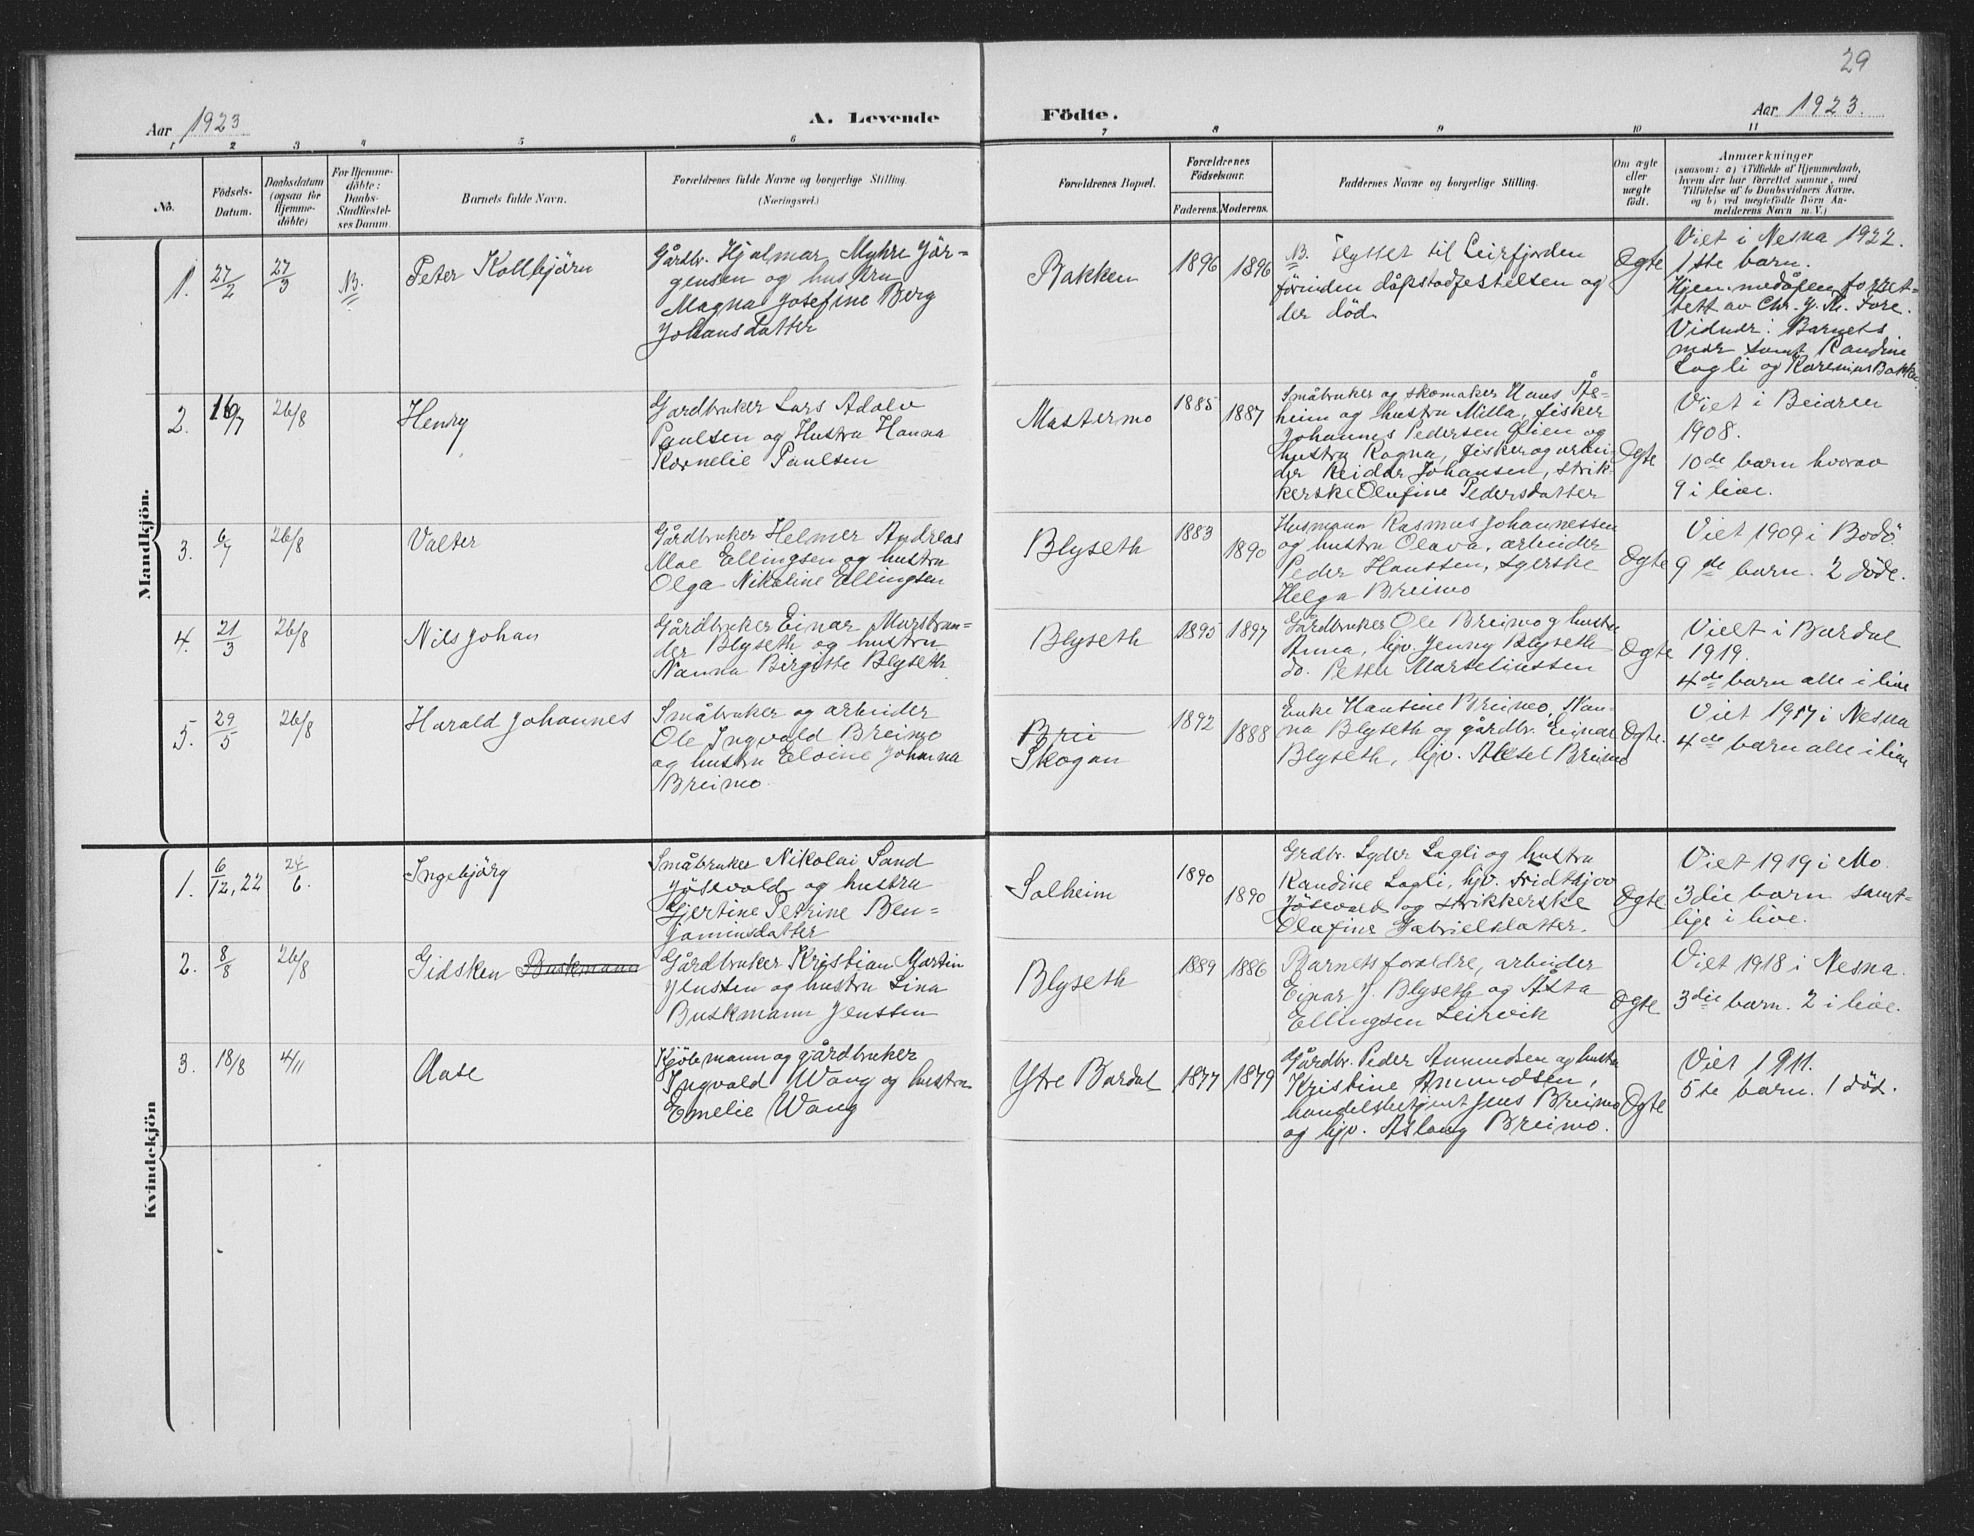 29
Aar 1923
A. Levende
Födte.
Aar 1923.
1 2 3 4 5 6 7 8 9 10 11
No.
Födsels-
Datum.
Daabsdatum
(ogsaa for
Hjemme-
döbte)
For Hjemme-
döbte:
Daabs-
Stadfæstel-
ses Datum.
Barnets fulde Navn.
Forældrenes fulde Navne og borgerlige Stilling.
(Næringsvei.)
Forældrenes Bopæl.
Forældrenes
Födselsaar.
Faderens. Moderens.
Faddernes Navne og borgerlige Stilling.
Om ægte
eller
uægte
födt.
Anmærkninger
(saasom: a) i Tilfælde af Hjemmedaab,
hvem der har forrettet samme, med
Tilföielse af to Daabsvidners Navne,
og b) ved uægtefödte Börn An-
melderens Navn m. V.)
Mandkjön.
1. 27/2 27/3 NB. Peter Kolbjörn
Gårdbr. Hjalmar Myhre Jör-
gensen og hustru
Magna Josefine Berg
Johansdatter
Bakken 1896 1896
NB. Flyttet til Leirfjorden
förinden dåpstadfestelsen og
der död.
Ægte
Viet i Nesna 1922.
1ste barn.
Hjemmedåpen forret-
tett av Chr. J. M. Fore.
Vidner: Barnets
mor samt Randine
Lagli og Karenius Bakken
2. 16/7 26/8 Henry
Gardbruker Lars Adolv
Paulsen og Hustru Hanna
Kornelie Paulsen
Mastermo 1885 1887
Småbruker og skomaker Hans Åe-
heim og hustru Milla, fisker
Johannes Pedersen Glien og
hustru Ragna, fisker og arbei-
der Reidar Johansen, strik-
kerske Olufine Pedersdatter
Ægte
Viet i Beiaren
1908.
10de barn hvorav
9 i live.
3. 6/7 26/8 Valter
Gårdbruker Helmer Andreas
Moe Ellingsen og hustru
Olga Nikoline Ellingsen
Blyseth 1883 1890
Husmann Rasmus Johannessen
og hustru Olava, arbeider
Peder Hanssen, syerske
Helga Breimo
Ægte
Viet 1909 i Bodö
9de barn. 2 döde.
4. 21/3 26/8 Nils Johan
Gårdbruker Einar Murstran-
der Blyseth og hustru
Nanna Birgitte Blyseth
Blyseth 1895 1897
Gårdbruker Ole Breimo og hustru
Anna, hjv. Jenny Blyseth
do. Petter Marseliussen
Ægte
Viet i Bardal
1919.
4de barn alle i live
5. 29/5 26/8 Harald Johannes
Småbruker og arbeider
Ole Ingvald Breimo
og hustru Eloine Johanna
Breimo.
Brei
Skogan
1892 1888
Enke Hansine Breimo, Nan-
na Blyseth og gårdbr. Einar
Blyseth, hjv. Aksel Breimo
Ægte.
Viet 1917 i Nesna
4de barn alle i live
Kvindekjön
1. 6/12, 22 24/6. Ingebjörg
Småbruker Nikolai Sand
Jösevold og hustru
Hjertine Petrine Ben-
jaminsdatter
Solheim 1890 1890
Grdbr. Lyder Lagli og hustru
Randine Lagli, hjv. Fridthjov
Jösevold og strikkerske
Olufine Gabrielsdatter.
Ægte
Viet 1919 i Mo.
3die barn samt-
lige i live.
2. 8/8 26/8 Gidsken Buskmann
Gårdbruker Kristian Martin
Jenssen og hustru Lina
Buskmann Jenssen
Blyseth 1889 1886
Barnets foreldre, arbeider
Einar J. Blyseth og Asta
Ellingsen Leirvik
Ægte
Viet 1918 i Nesna.
3die barn. 2 i live.
3. 18/8 4/11 Aase
Kjöbmann og gårdbruker
Ingvald Wang og hustru
Emelie Wang
Ytre Bardal 1877 1879
Gårdbr. Peder Amundsen og hustru
Kristine Amundsen,
handelsbetjent Jens Breimo
og hjv. Aslaug Breimo.
Ægte
Viet 1911.
5te barn. 1 död.